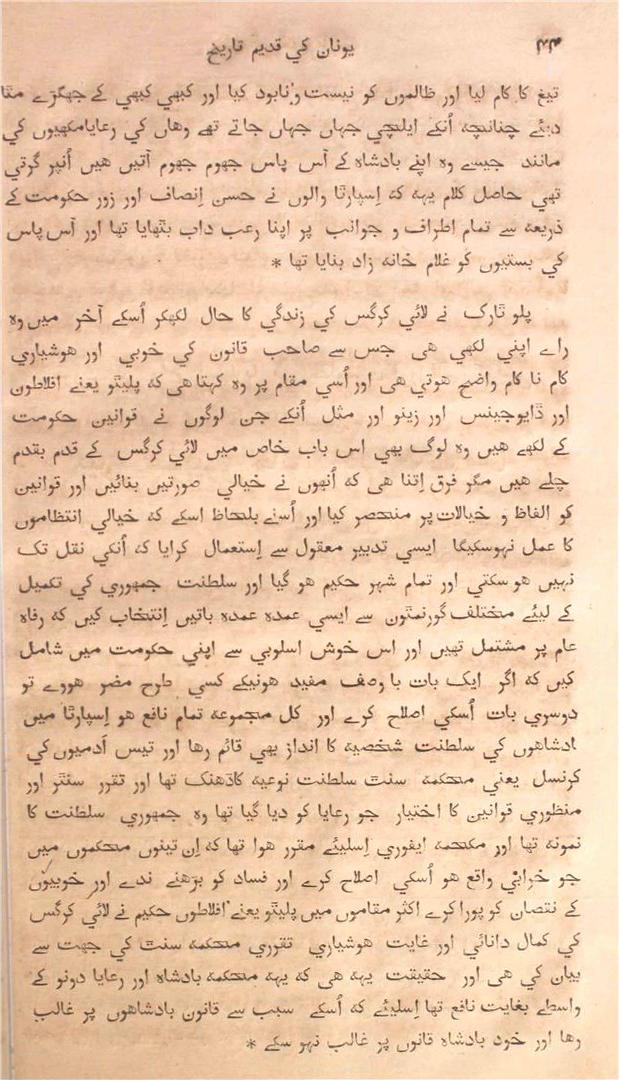 یونان کي قدیم تاریخ
تیغ کا کام لیا اور ظالموں کو نیست و نابود کیا اور کبھي کبھي کے جھگڑے مٹا
دیئے چنانچہ اُنکے ایلچي جہاں جہاں جاتے تھے وھاں کي رعایا مکھیوں کي
مانند جیسے وہ اپنے بادشاہ کے آس پاس جھوم جھوم آتیں ھیں اُنپر گرتي
تھي حاصل کلام یہہ کہ اِسپارٹا والوں نے حسن اِنصاف اور زور حکومت کے
ذریعہ سے تمام اطراف و جوانب پر اپنا رعب داب بٹھایا تھا اور آس پاس
کي بستیوں کو غلام خانہ زاد بنایا تھا *
پلو ٹارک نے لائي کرگس کي زندگي کا حال لکھکر اُسکے آخر میں وہ
راے اپني لکھي ھی جس سے صاحب قانون کي خوبي اور ھوشیاري
کام نا کام واضح ھوتي ھی اور اُسي مقام پر وہ کہتا ھی کہ پلیٹو یعنے افلاطون
اور ڈایوجینس اور زینو اور مثل اُنکے جن لوگوں نے قوانین حکومت
کے لکھے ھیں وہ لوگ بھي اس باب خاص میں لائي کرگس کے قدم بقدم
چلے ھیں مگر فرق اِتنا ھی کہ اُنھوں نے خیالي صورتیں بنائیں اور قوانین
کو الفاظ و خیالات پر منحصر کیا اور اُسنے بلحاظ اسکے کہ خیالي انتظاموں
کا عمل نہوسکیگا ایسي تدبیر معقول سے اِستعمال کرایا کہ اُنکي نقل تک
نہیں ھو سکتي اور تمام شہر حکیم ھو گیا اور سلطنت جمہوري کي تکمیل
کے لیئے مختلف گورنمنٹون سے ایسي عمدہ عمدہ باتیں اِنتخاب کیں کہ رفاہ
عام پر مشتمل تھیں اور اس خوش اسلوبي سے اپني حکومت میں شامل
کیں کہ اگر ایک بات با وصف مفید ھونیکے کسي طرح مضر ھووے تو
دوسري بات اُسکي اصلاح کرے اور کل مجموعہ تمام نافع ھو اِسپارٹا میں
ادشاھوں کي سلطنت شخصیہ کا انداز بھي قائم رھا اور تیس آدمیوں کي
کونسل یعني محکمہ سنٹ سلطنت نوعیہ کا ڈھنگ تھا اور تقرر سنٹر اور
منظوري قوانین کا اختیار جو رعایا کو دیا گیا تھا وہ جمہوري سلطنت کا
نمونہ تھا اور محکمہ ایفوري اِسلیئے مقرر ھوا تھا کہ اِن تینوں محکموں میں
جو خرابي واقع ھو اُسکي اصلاح کرے اور فساد کو بڑھنے ندے اور خوبیوں
کے نقصان کو پورا کرے اکثر مقاموں میں پلیٹو یعنے افلاطوں حکیم نے لائي کرگس
کي کمال دانائي اور غایت ھوشیاري تقرري محکمہ سنٹ کي جہت سے
بیان کي ھی اور حقیقت یہہ ھی کہ یہہ محکمہ بادشاہ اور رعایا دونو کے
واسطے بغایت نافع تھا اِسلیئے کہ اُسکے سبب سے قانون بادشاھوں پر غالب
رھا اور خود بادشاہ قانوں پر غالب نہو سکے *